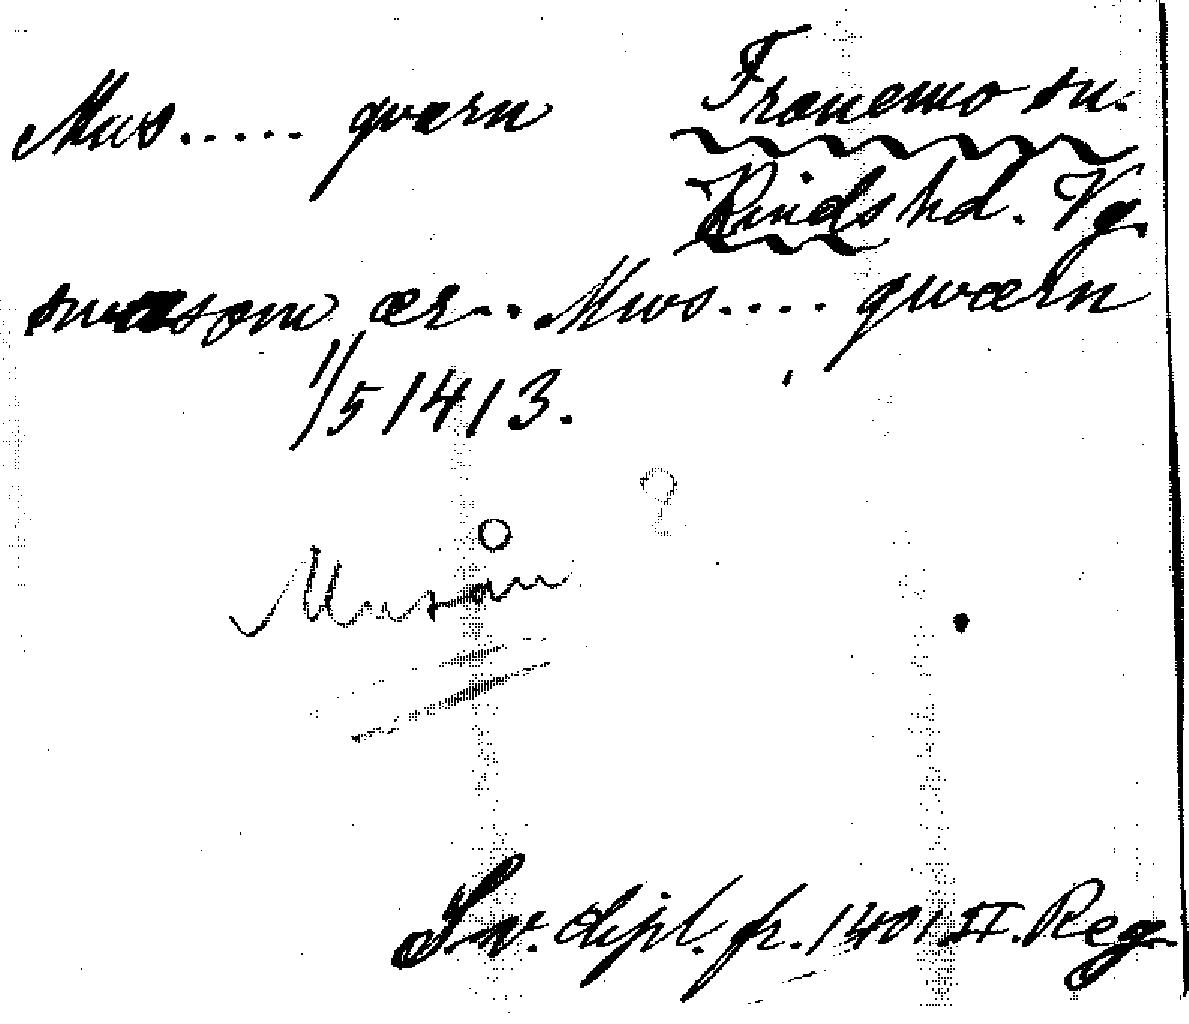 Mus..... qværn
Tranemo sn.
Kinds hd. Vg.
swasom ær.. Mws.... qwærn
1/5 1413.
?
Musån
Sv. dipl. fr. 1401 II. Reg.